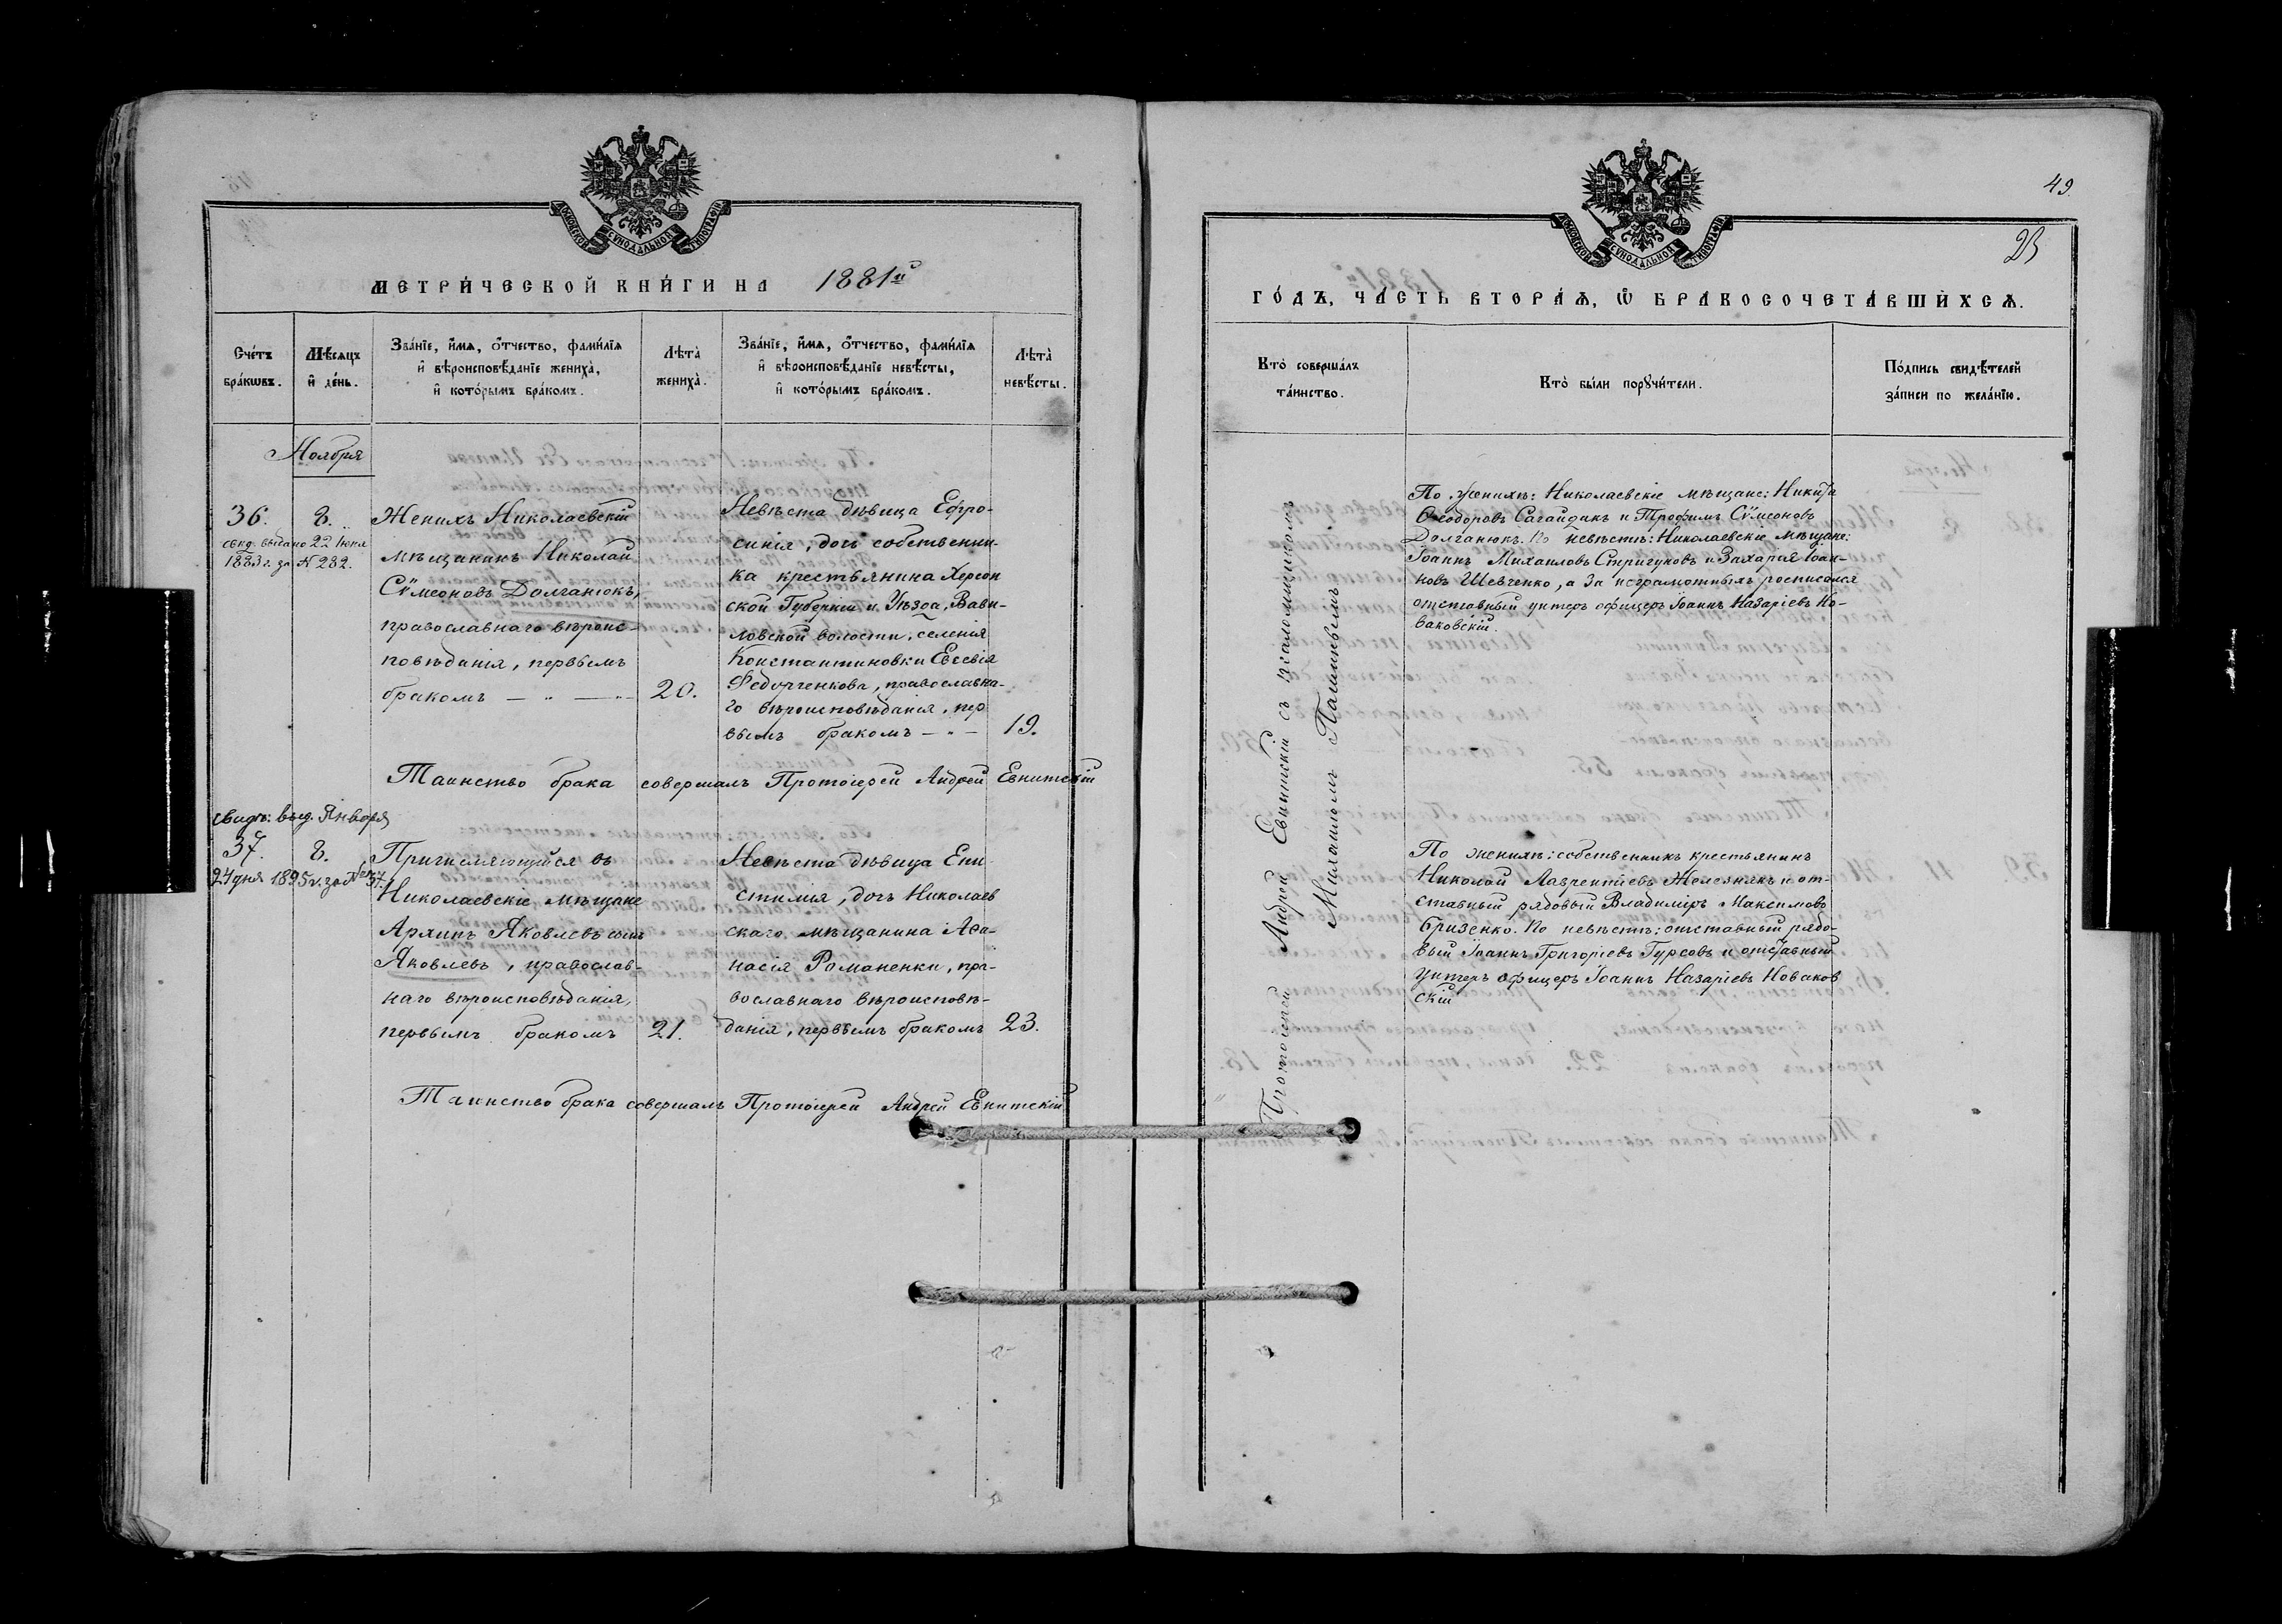 МОСКОВСКОЙ СѴНОДАЛЬНОЙ ТИПОГРАФІИ
МЕТРИ́ЧЕСКОЙ КНИ́ГИ НА 1881й
Сче́тъ бра́кѡвъ.
Мѣ́сяцъ и҆ де́нь.
Зва́нїе, и҆́мѧ, ѻ҆́тчество, фами́лїѧ
и҆ вѣроисповѣ́данїе жениха̀,
и҆ кото́рымъ бра́комъ.
Лѣ́та̀ жениха̀.
Зва́нїе, и҆́мѧ, ѻ҆́тчество, фами́лїѧ
и҆ вѣроисповѣ́данїе невѣ́сты,
и҆ кото́рымъ бра́комъ.
Лѣ́та̀ невѣ́сты.
Ноября
36.
8.
свид. выдано 22 Іюня
1883 г. за № 282.
Женихъ Николаевскій
мѣщанинъ Николай
Сѵмеоновъ Долганюкъ,
православнаго вѣроис-
повѣданія, первымъ
бракомъ — „ — „ — 20.
Невѣста дѣвица Ефро-
синія, дочь собственни-
ка крестьянина Херсон
ской Губерніи и Уѣзда, Вави-
ловской волости, селенія
Константиновки Евсевія
Федорченкова, православна-
го вѣроисповѣданія, пер
вымъ бракомъ — „ — 19.
Таинство брака совершалъ Протоіерей Андрей Евнитскій
свидѣ: выд. Января
37.
8.
24 дня 1895 г. за № 37.
Причисляющійся въ
Николаевскіе мѣщане
Архипъ Яковлевъ сынъ
Яковлевъ, православ-
наго вѣроисповѣданія,
первымъ бракомъ 21.
Невѣста дѣвица Епи-
стимія, дочь Николаев
скаго мѣщанина Аѳа-
насія Романенки, пра-
вославнаго вѣроисповѣ-
данія, первымъ бракомъ 23.
Таинство брака совершалъ Протоіерей Андрей Евнитскій
49
МОСКОВСКОЙ СѴНОДАЛЬНОЙ ТИПОГРАФІИ
ГО́ДЪ, ЧА́СТЬ ВТОРА́Ѧ, Ѽ БРАКОСОЧЕТА́ВШИХСѦ.
Кто̀ соверша́лъ
та́инство.
Кто̀ бы́ли порꙋчи́тели.
По́дпись свидѣ́телей
за́писи по жела́нїю.
Протоіерей Андрей Евнитскій съ псаломщикомъ
По женихѣ: Николаевскіе мѣщане: Никита
Ѳеодоровъ Сагайдакъ и Трофимъ Сѵмеоновъ
Долганюкъ. По невѣстѣ: Николаевскіе мѣщане:
Іоаннъ Михаиловъ Стригуновъ и Захарія Іоан-
новъ Шевченко, а за неграмотныхъ росписался
отставный унтеръ офицеръ Іоаннъ Назаріевъ Но-
ваковскій.
По женихѣ: собственникъ крестьянинъ
Николай Лаврентіевъ Железнякъ и от-
ставный рядовый Владиміръ Максимовъ
Бризенко. По невѣстѣ: отставный рядо-
вый Іоаннъ Григоріевъ Гурсовъ и отставный
унтеръ офицеръ Іоаннъ Назаріевъ Новаков
скій